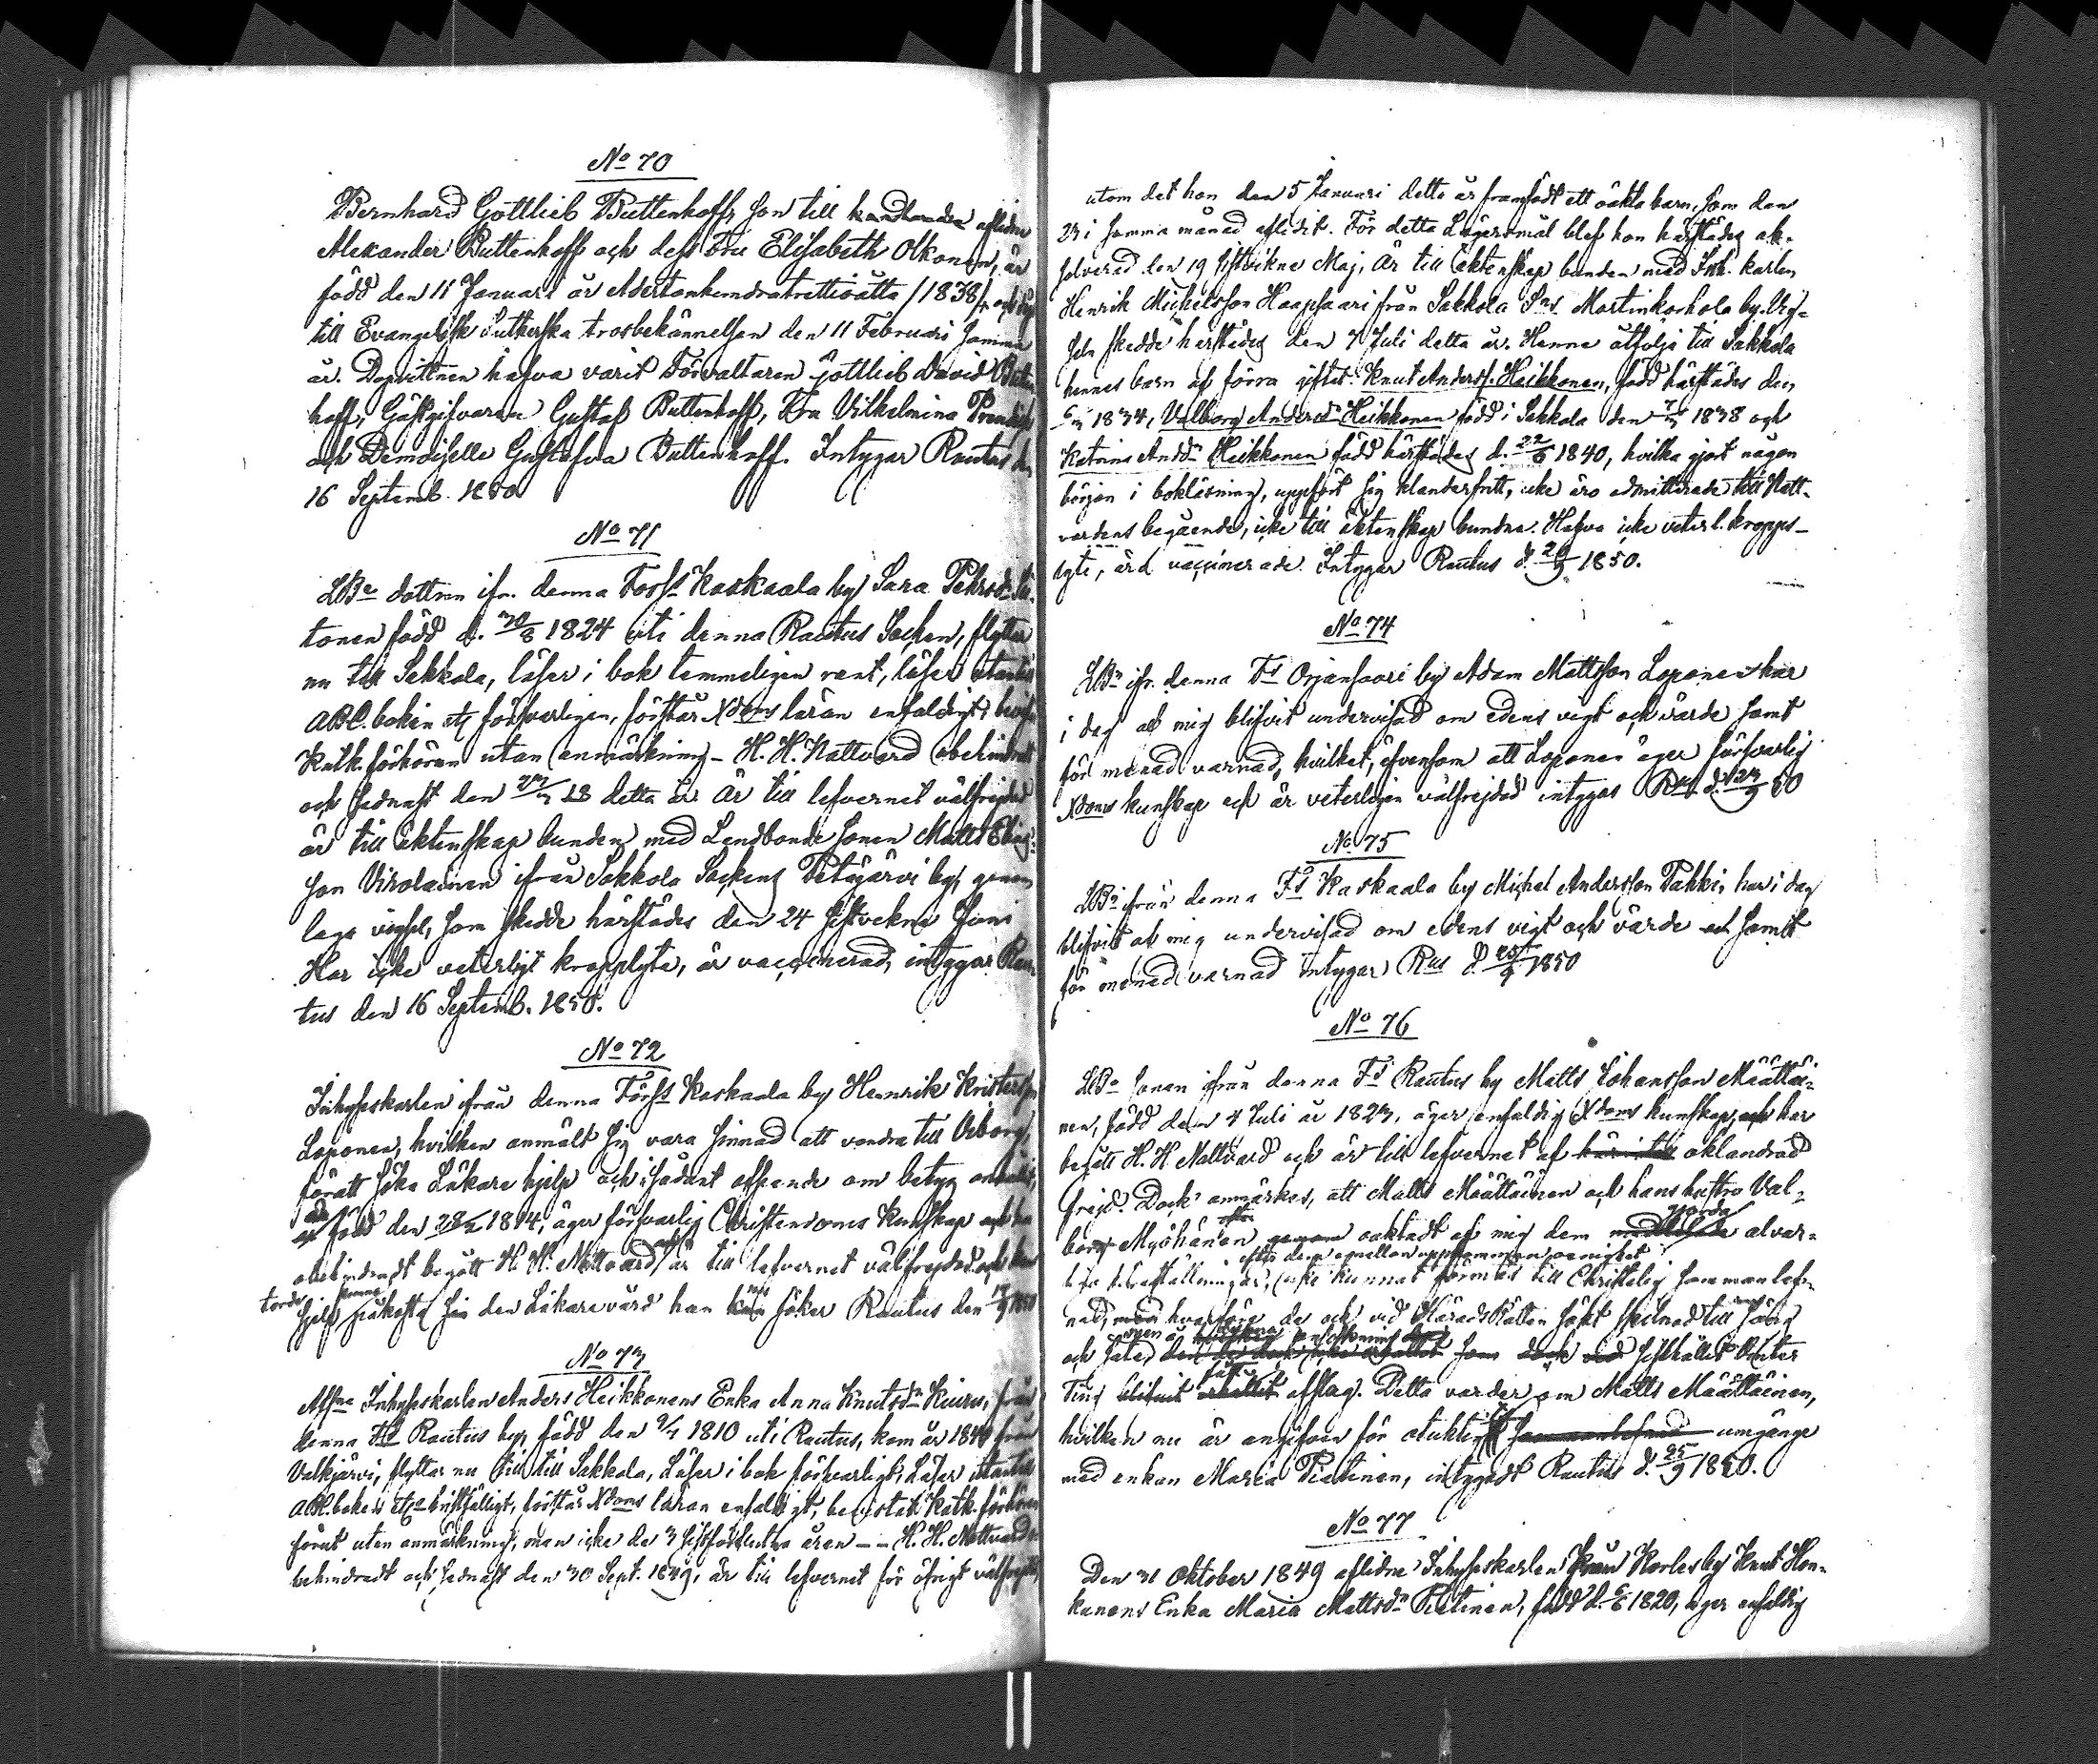 No 70
Bernhard Gottlieb Buttenhoff, son till handlanden aflidne
Alexander Buttenhoff och dess Fru Elisabeth Olkonen, är
född den 11 Januari år Adertonhundratrettioåtta /1838/ och
till Evangelisk Lutherska trosbekännelsen den 11 Februari samma
år. Dopvittnen hafva varit Förvaltaren Gottlieb David Butten
hoff, Gästgifvaren Gustaf Buttenhoff, Fru Vilhelmina
och Demoiselle Gustafva Buttenhoff. Intygar Rautus den
16 Septemb. 1850
No 71
LBe dottren ifr. denna Förss Kaskaala by Sara Pehrsdr
tonen född d. 30/8 1824 uti denna Rautus Socken, flyttar
nu till Sakkola, läser i bok temmeligen rent, läser utantill
ABC. boken etc försvarligen, förstår Xdoms läran enfaldigt,
Kath. förhören utan anmärkning - H. H. Nattvard obehindradt
och sednast den detta år. Är till lefvernet välfrejdad
är till äktenskap bunden med Landbonde sonen Matts
son Virolainen ifrån Sakkola Sockens Petäjärvi by, genom
laga vigsel, som skedde härstädes den 24 sistvekne Juni
Har icke veterligt kropplyte, är vaccinerad, intygar Rau
tus den 16 Septemb. 1850.
No 72
Inhyseskarlen ifrån denna Förss Kaskaala by Henrik Kristersson
Loponen, hvilken anmält sig vara sinnad att vandra till Viborg,
föratt söka Läkare hjelp och i sådant afseende om betyg anhållit,
är född den 28/2 1814, äger försvarlig Christendoms kunskap och har
obehindradt begått H. H. Nattvard, är till lefvernet välfrejdad och
torde hjelp kunna den Läkarevård han söker Rautus den 19/9 1850
No 73
Afne Inhyseskarlen Anders Heikkonens Enka Anna Knutsdr Kiuru, från
denna Fs Rautus by, född den 9/7 1810 uti Rautus, kom år 1840 från
Valkjärvi, flyttar nu till till Sakkola, Läser i bok försvarligt, Läser utantill
ABC. boken etc bristfälligt, förstår Xdoms läran enfaldigt, bevistat Kath. förhören
förut utan anmärkning, men icke de 3 sistförflutna åren - - H. H. Nattvard
behindradt och sednast den 30 Sept. 1849, är till lefvernet för öfrigt välfrejdad
utom det hon den 5 Januari detta år framfödt ett oäkta barn, som den
23 i samma månad aflidit. För detta Lägersmål blef hon härstädes ab-
solverad den 19 sistvikne Maj, Är till äktenskap bunden med Inh. karlen
Henrik Michelsson Haapsaari från Sakkola Sns Martinkorhola by. Vig-
seln skedde härstädes den 7 Juli detta år. Henne åtfölja till Sakkola
hennes barn af förra giftet: Knut Anderss. Heikkonen, född härstädes den
1834, Valborg Andersdr Heikkonen född i Sakkola den 1838 och
Katrina Andsdr Heikkonen född härstädes d. 22/6 1840, hvilka gjort någon
början i bokläsning, uppfört sig klanderfritt, icke äro admitterade till Natt-
vardens begående, icke till äktenskap bundna. Hafva icke veterl. kropps-
lyte, äro vaccinerade. Intygar Rautus d. 20/9 1850.
No 74
LBn ifr. denna Fs Orjansaari by Adam Mattsson Loponen har
i dag af mig blifvit undervisad om edens vigt och värde samt
för mened varnad, hvilket, äfvensom att Loponen äger försvarlig
Xdoms kunskap och är veterligen välfrejdad intygas Rus d. 50
No 75
LBn ifrån denna Fs Kaskaala by Michel Andersson Pakki, har i dag
blifvit af mig undervisad om edens vigt och värde och samt
för mened varnad intygar Rus d. 1850
No 76
LBe sonen ifrån denna Fs Rautus by Matts Johansson Määttäi-
nen, född den 4 Juli år 1823, äger enfaldig Xdoms kunskap, och har
begått H. H Nattvard och är till lefvernet af härintill oklandrad
frejd. Dock anmärkes, att Matts Määttäinen och hans hustru Val-
gjorda
borg Myöhänen genom oaktadt af mig dem meddelade alvar-
efter dem emellan uppkommen oenighet
liga föreställningar, icke kunnat förmås till Christelig sammanlef-
nad, hvarföre de ock vid HäradsRätten sökt skilnad till säng
och säte, den de dock icke erhållit som dock vid sisthållet Vinter
Ting blifvit erhållit afslag. Detta varder om Matts Määttäinen,
hvilken nu är angifven för otuktigt sammanlefnad umgänge
med enkan Maria Pietinen, intygadt Rautus d. 25/9 1850.
No 77
Den 31 Oktober 1849 aflidne Inhyseskarlen från Korlee by Knut Hon-
kanens Enka Maria Mattsdr Pietinen, född d. 1820, äger enfaldig